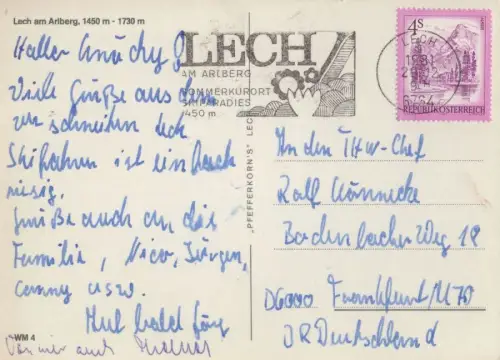 Lech am Arlberg, 1450 m - 1730 m
Hallo
Viele Grüße aus dem
zur schneiten Lech
Skifahren ist einfach
riesig.
Grüße auch an die
Familia, Nico, Jürgen,
Conny usw.
Mul bald Jörg
Von mir auch
WM 4
"PFEFFERKORN'S" LEC
LECH
AM ARLBERG
SOMMERKURORT
SKIPARADIES
1450 m
LECH
6764
4S
REPUBLIK ÖSTERREICH
An den THW-Chef
Ralf Könnecke
Bodenbacher Weg 18
D6000 Frankfurt/M 70
BRDeutschland